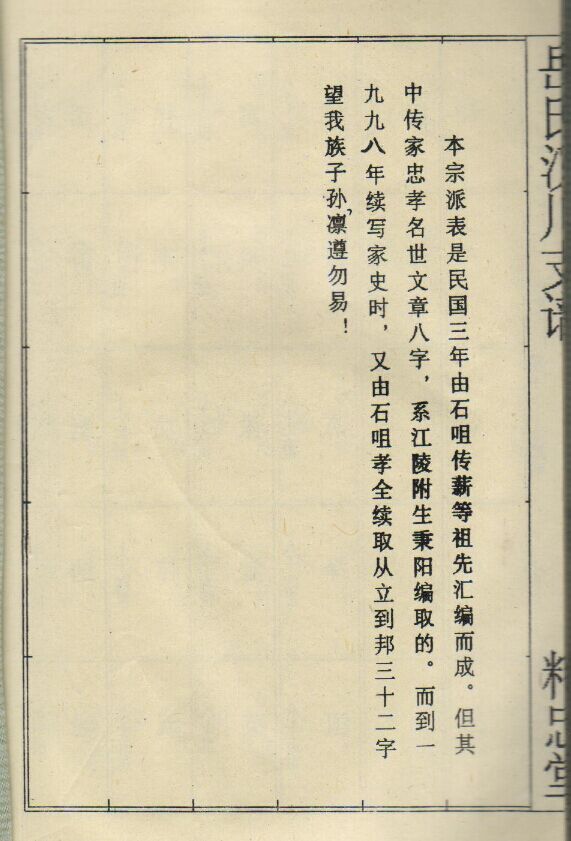 岳氏沙月支谱
精忠堂
本宗派表是民国三年由石咀传薪等祖先汇编而成。但其
中传家忠孝名世文章八字，系江陵附生秉阳编取的。而到一
九九八年续写家史时，又由石咀孝全续取从立到邦三十二字
望我族子孙，凛遵勿易！